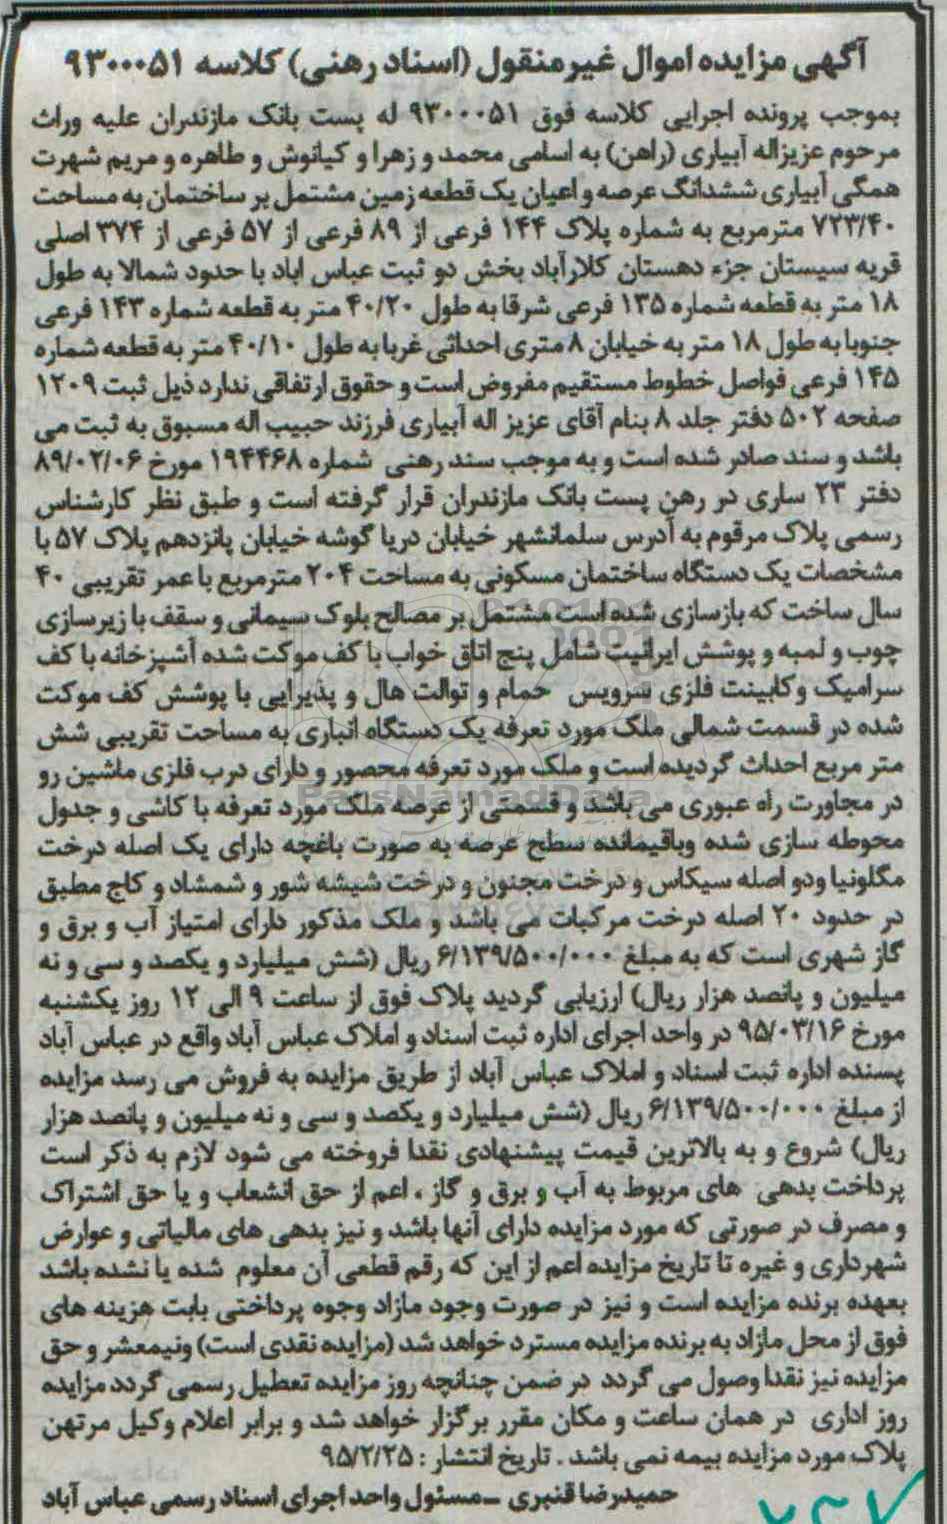 آگهی مزایده اموال غیرمنقول (اسناد رهنی) کلاسه ۹۳۰۰۰۵۱
بموجب پرونده اجرایی کلاسه فوق ۹۳۰۰۰۵۱ له پست بانک مازندران علیه وراث
مرحوم عزیزاله آبیاری (راهن) به اسامی محمد و زهرا و کیانوش و طاهره و مریم شهرت
همگی آبیاری ششدانگ عرصه و اعیان یک قطعه زمین مشتمل بر ساختمان به مساحت
۷۲۳/۴۰ مترمربع به شماره پلاک ۱۴۴ فرعی از ۸۹ فرعی از ۵۷ فرعی از ۳۷۴ اصلی
قریه سیستان جزء دهستان کلارآباد بخش دو ثبت عباس اباد با حدود شمالا به طول
۱۸ متر به قطعه شماره ۱۳۵ فرعی شرقا به طول ۴۰/۲۰ متر به قطعه شماره ۱۴۳ فرعی
جنوبا به طول ۱۸ متر به خیابان ۸ متری احداثی غربا به طول ۴۰/۱۰ متر به قطعه شماره
۱۴۵ فرعی فواصل خطوط مستقیم مفروض است و حقوق ارتفاقی ندارد ذیل ثبت ۱۲۰۹
صفحه ۵۰۲ دفتر جلد ۸ بنام آقای عزیز اله آبیاری فرزند حبیب اله مسبوق به ثبت می
باشد و سند صادر شده است و به موجب سند رهنی شماره ۱۹۴۴۶۸ مورخ ۸۹/۰۲/۰۶
دفتر ۲۳ ساری در رهن پست بانک مازندران قرار گرفته است و طبق نظر کارشناس
رسمی پلاک مرقوم به آدرس سلمانشهر خیابان دریا گوشه خیابان پانزدهم پلاک ۵۷ با
مشخصات یک دستگاه ساختمان مسکونی به مساحت ۲۰۴ مترمربع با عمر تقریبی ۴۰
سال ساخت که بازسازی شده است مشتمل بر مصالح بلوک سیمانی و سقف با زیرسازی
چوب و لمبه و پوشش ایرانیت شامل پنج اتاق خواب با کف موکت شده آشپزخانه با کف
سرامیک و کابینت فلزی سرویس حمام و توالت هال و پذیرایی با پوشش کف موکت
شده در قسمت شمالی ملک مورد تعرفه یک دستگاه انباری به مساحت تقریبی شش
متر مربع احداث گردیده است و ملک مورد تعرفه محصور و دارای درب فلزی ماشین رو
در مجاورت راه عبوری می باشد و قسمتی از عرصه ملک مورد تعرفه با کاشی و جدول
محوطه سازی شده وباقیمانده سطح عرصه به صورت باغچه دارای یک اصله درخت
مگلونیا ودو اصله سیکاس و درخت مجنون و درخت شیشه شور و شمشاد و کاج مطبق
در حدود ۲۰ اصله درخت مرکبات می باشد و ملک مذکور دارای امتیاز آب و برق و
گاز شهری است که به مبلغ ۶/۱۳۹/۵۰۰/۰۰۰ ریال (شش میلیارد و یکصد و سی و نه
میلیون و پانصد هزار ریال) ارزیابی گردید پلاک فوق از ساعت ۹ الی ۱۲ روز یکشنبه
مورخ ۹۵/۰۳/۱۶ در واحد اجرای اداره ثبت اسناد و املاک عباس آباد واقع در عباس آباد
پسنده اداره ثبت اسناد و املاک عباس آباد از طریق مزایده به فروش می رسد مزایده
از مبلغ ۶/۱۳۹/۵۰۰/۰۰۰ ریال (شش میلیارد و یکصد و سی و نه میلیون و پانصد هزار
ریال) شروع و به بالاترین قیمت پیشنهادی نقدا فروخته می شود لازم به ذکر است
پرداخت بدهی های مربوط به آب و برق و گاز ، اعم از حق انشعاب و یا حق اشتراک
و مصرف در صورتی که مورد مزایده دارای آنها باشد و نیز بدهی های مالیاتی و عوارض
شهرداری و غیره تا تاریخ مزایده اعم از این که رقم قطعی آن معلوم شده یا نشده باشد
بعهده برنده مزایده است و نیز در صورت وجود مازاد وجوه پرداختی بابت هزینه های
فوق از محل مازاد به برنده مزایده مسترد خواهد شد (مزایده نقدی است) ونیمعشر و حق
مزایده نیز نقدا وصول می گردد در ضمن چنانچه روز مزایده تعطیل رسمی گردد مزایده
روز اداری در همان ساعت و مکان مقرر برگزار خواهد شد و برابر اعلام وکیل مرتهن
پلاک مورد مزایده بیمه نمی باشد . تاریخ انتشار : ۹۵/۲/۲۵
حمیدرضا قنبری -مسئول واحد اجرای اسناد رسمی عباس آباد
ParsNamadData